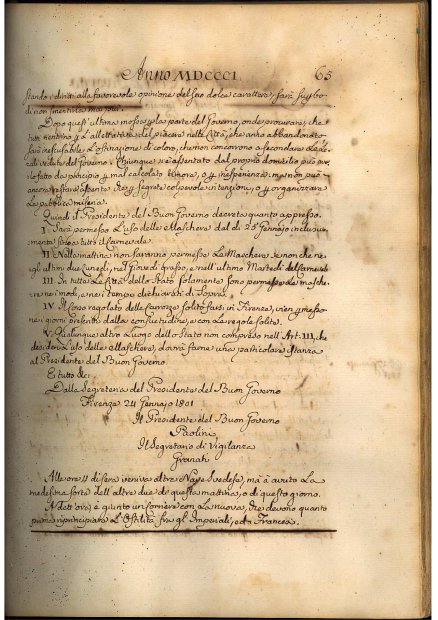 Anno MDCCCI. 65
stando i diritti alla favorevole opinione del suo dolce carattere, sarà
di non smentirla mai più.
Dopo quest'ultima mossa per la parte del Governo, onde procurare, che
tutti sentino l'allettativa del piacere nelle Città, che anno abbandonato
sarà inescusabile l'ostinazione di coloro, che non concorrono a secondare le
vedute del Governo. Chiunque si è assentato dal proprio domicilio può
lo fatto da principio per mal calcolato timore, o per inesperienza, ma non può
ancora restare assente che per segrete colpevole intenzioni, o per organizzare
la pubblica miseria.
Quindi il Presidente del Buon Governo decreta quanto appresso.
I. Sarà permesso l'uso delle Maschere dal dì 25 Gennajo inclusiva-
mente fino a tutto il Carnevale.
II. Nella mattina non saranno permesse le Maschere se non che ne-
gli ultimi due Lunedì, nel Giovedì grasso, e nell'ultimo Martedì del Carnevale
III. In tutte le Città dello Stato solamente sono permesse le masche-
re nei modi, e nei tempi dichiarati di sopra.
IV. Il corso regolato delle Carrozze solito farsi in Firenze, in
giorni prescritti dalla consuetudine, e con le regole solite.
V. Qualunque altro Luogo dello Stato non compreso nell'Art. III, che
desidera l'uso delle Maschere, dovrà farne una particolare istanza
al Presidente del Buon Governo.
E tutto &c.
Dalla Segreteria del Presidente del Buon Governo
Firenze 24 Gennajo 1801
Il Presidente del Buon Governo
Paolini
Il Segretario di Vigilanza
Granati
Alle ore 4 di sera veniva altre Nave Svedese, mà à avuto la
medesima sorte dell'altre due di questa mattina, o di questo giorno.
A dett'ora è giunto un corriere con la nuova, che devono quanto
prima riprincipiare l'Ostilità fra gl'Imperiali, ed i Francesi.